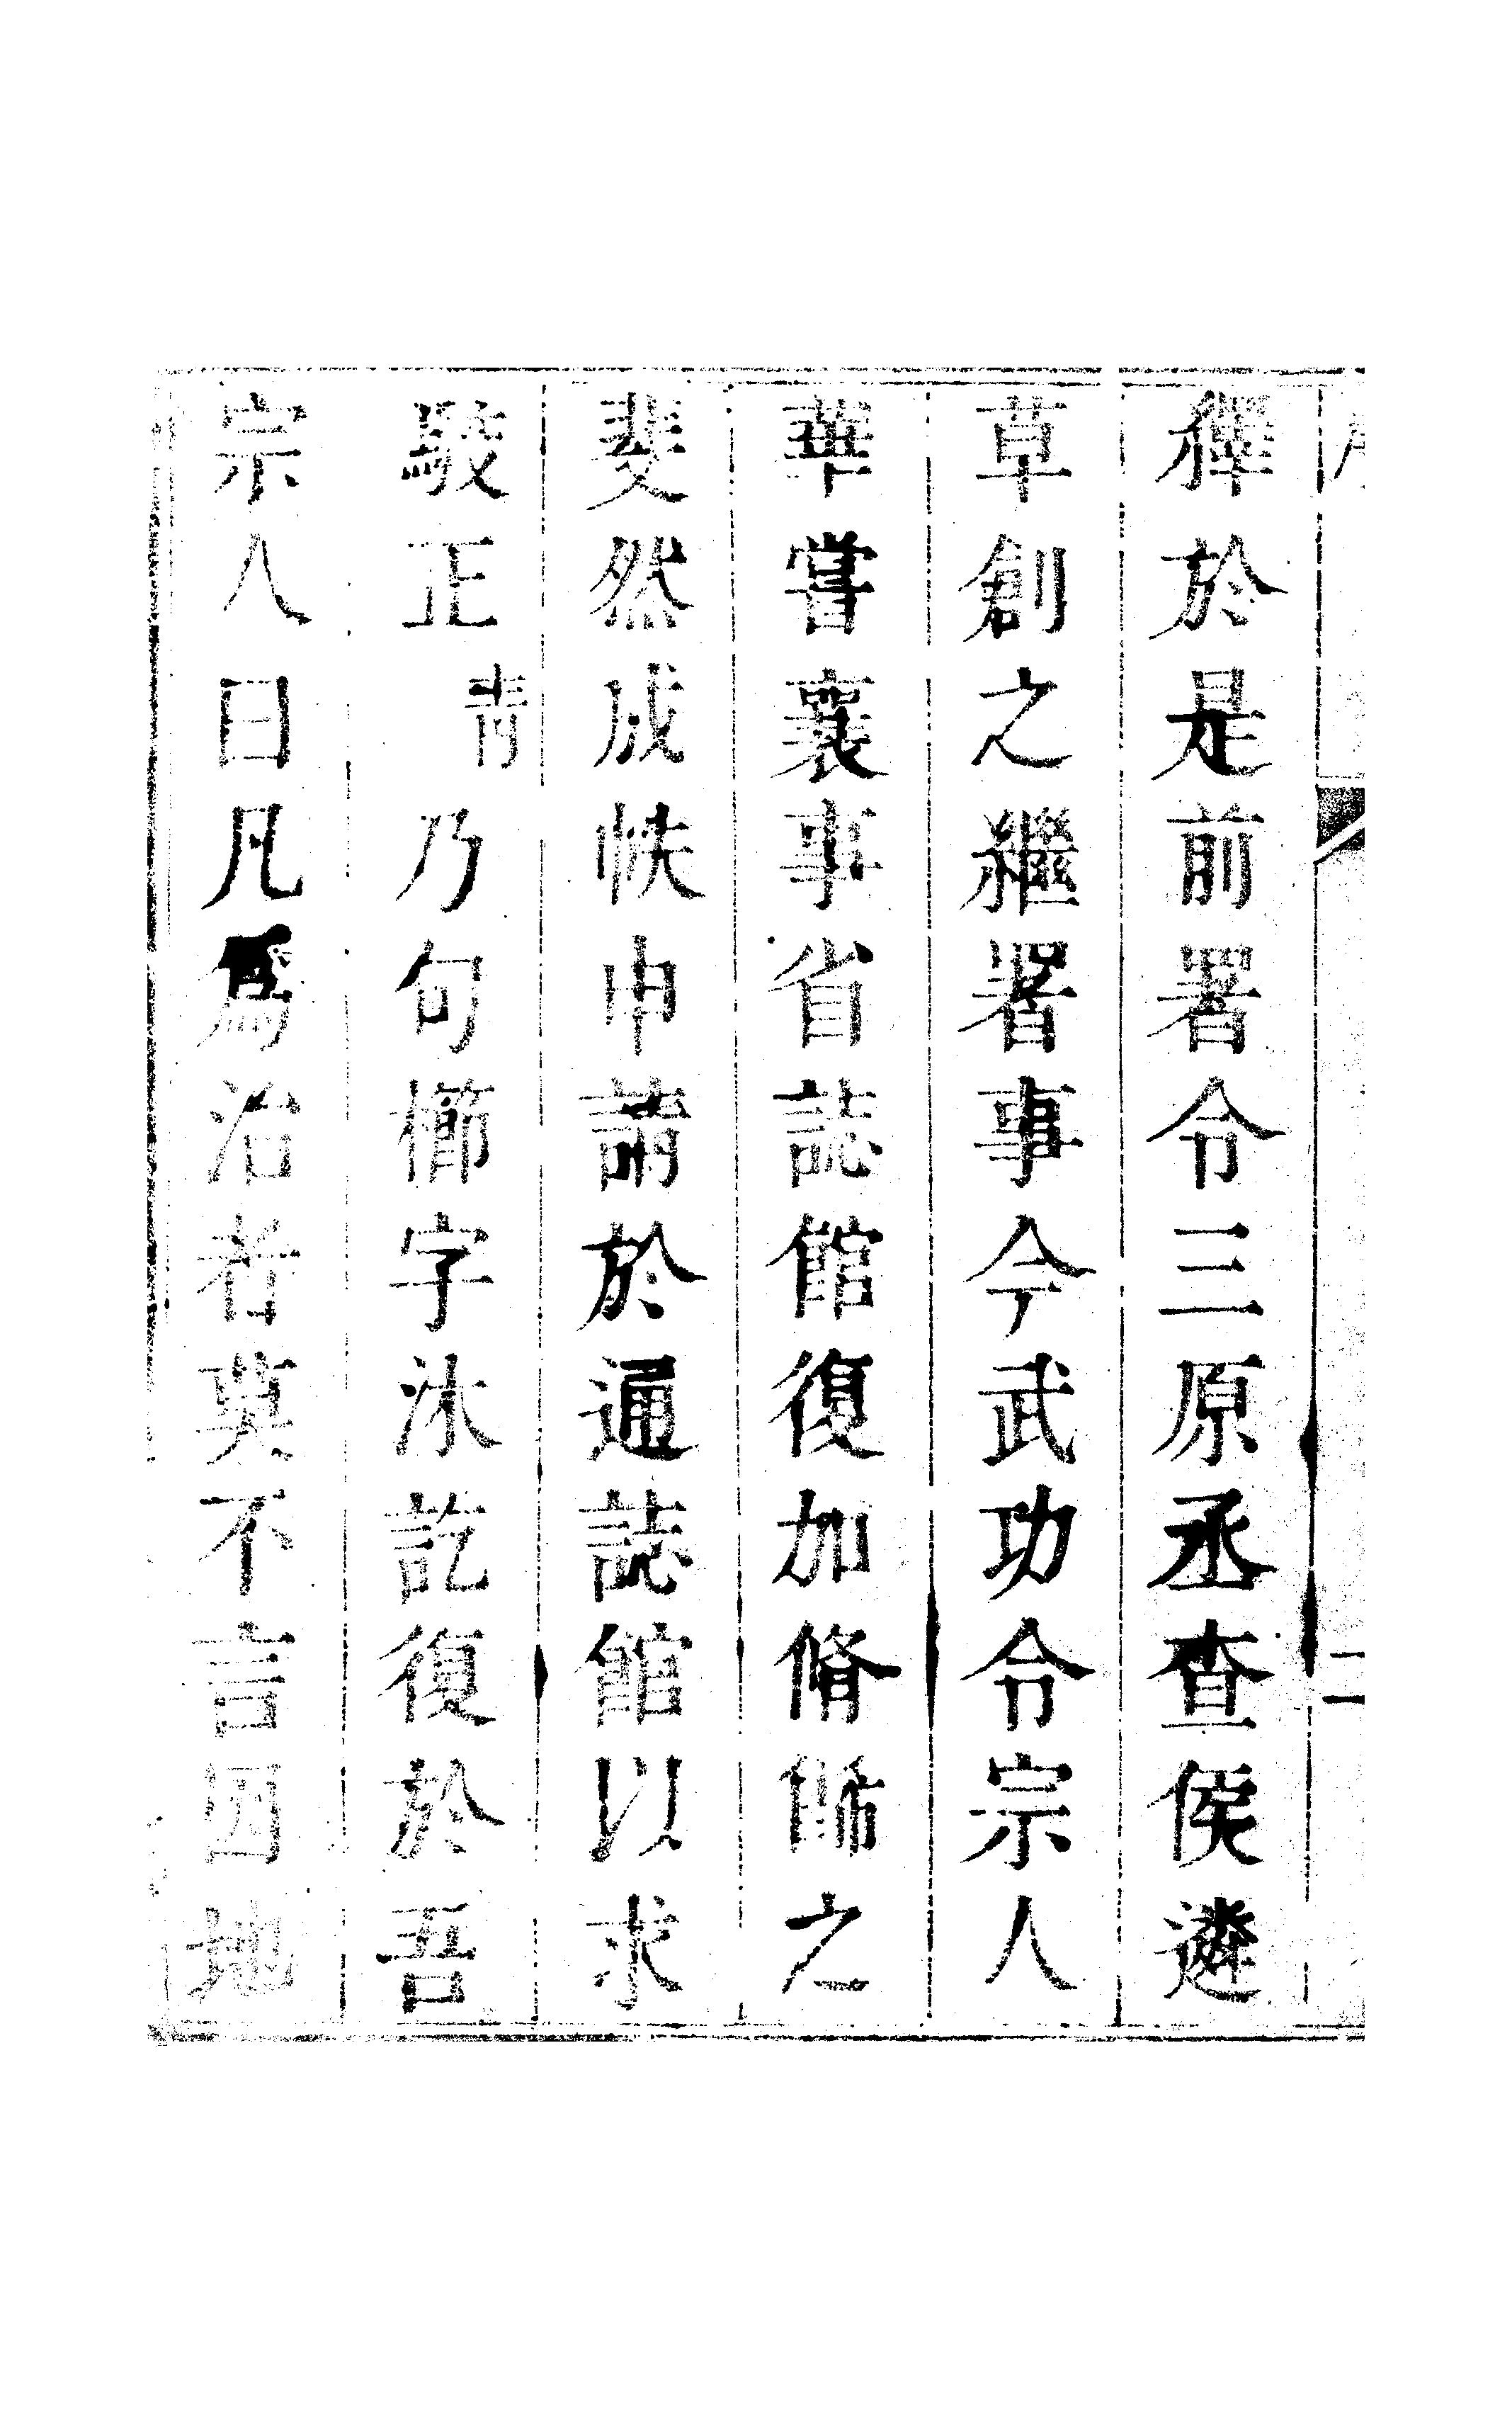 釋於是前署令三原丞查侯遴
草創之繼署事今武功令宗人
華嘗襄事省誌館復加脩飾之
斐然成帙申請於通誌館以求
駁正青乃句櫛字沐訖復於吾
宗人曰凡爲治者莫不言因地